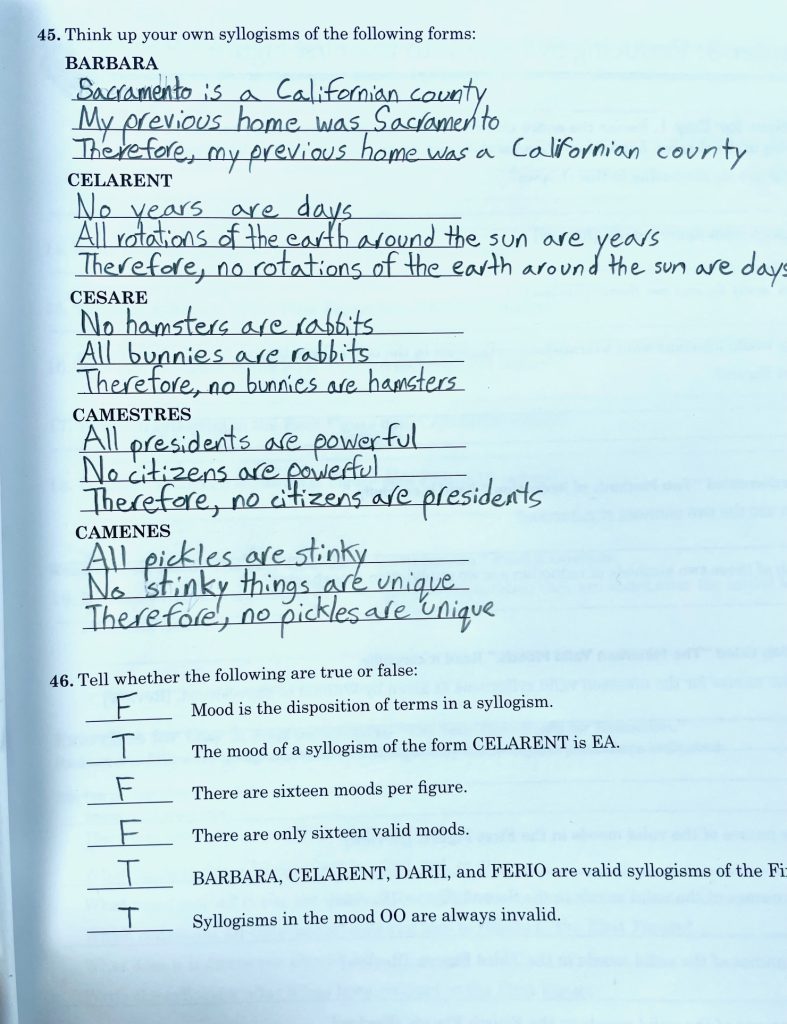 45. Think up your own syllogisms of the following forms:
BARBARA
Sacramento is a Californian county
My previous home was Sacramento
Therefore, my previous home was a Californian county
CELARENT
No years are days
All rotations of the earth around the sun are years
Therefore, no rotations of the earth around the sun are days
CESARE
No hamsters are rabbits
All bunnies are rabbits
Therefore, no bunnies are hamsters
CAMESTRES
All presidents are powerful
No citizens are powerful
Therefore, no citizens are presidents
CAMENES
All pickles are stinky
No stinky things are unique
Therefore, no pickles are unique
46. Tell whether the following are true or false:
F Mood is the disposition of terms in a syllogism.
T The mood of a syllogism of the form CELARENT is EA.
F There are sixteen moods per figure.
F There are only sixteen valid moods.
T BARBARA, CELARENT, DARII, and FERIO are valid syllogisms of the
T Syllogisms in the mood OO are always invalid.